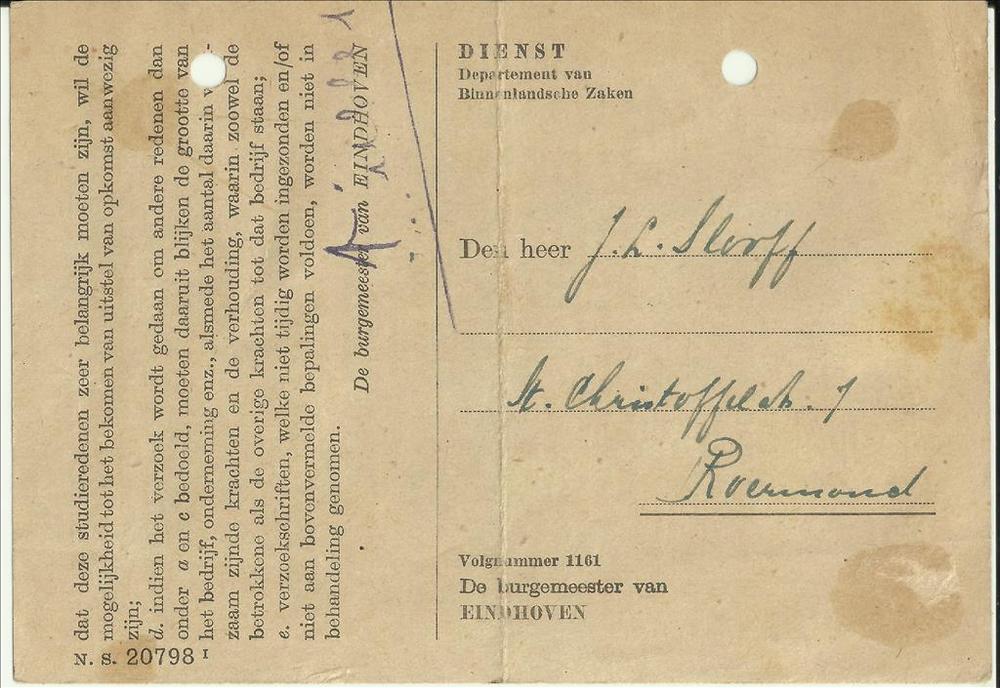 dat deze studieredenen zeer belangrijk moeten zijn, wil de
mogelijkheid tot het bekomen van uitstel van opkomst aanwezig
zijn;
d. indien het verzoek wordt gedaan om andere redenen dan
onder a en c bedoeld, moeten daaruit blijken de grootte van
het bedrijf, onderneming enz., alsmede het aantal daarin
zaam zijnde krachten en de verhouding, waarin zoowel de
betrokkene als de overige krachten tot dat bedrijf staan;
e. verzoekschriften, welke niet tijdig worden ingezonden en/of
niet aan bovenvermelde bepalingen voldoen, worden niet in
behandeling genomen.
De burgemeester van EINDHOVEN
N. S. 20798 I
DIENST
Departement van
Binnenlandsche Zaken
Den heer J. L. Slorff
St. Christoffelstr. 7
Roermond
Volgnummer 1161
De burgemeester van
EINDHOVEN